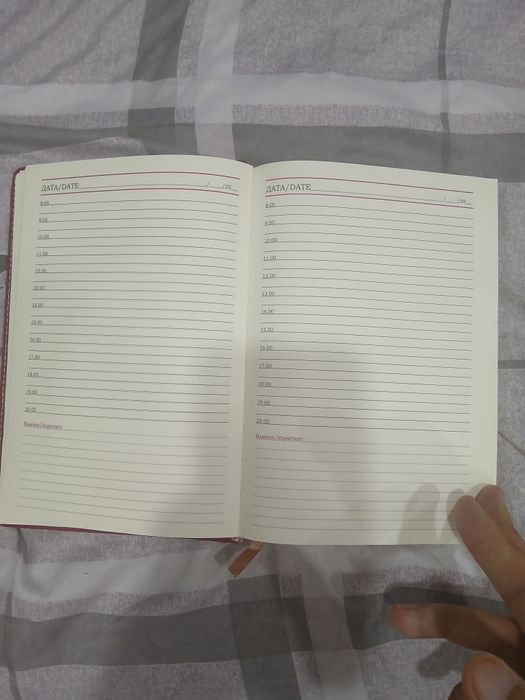 ДАТА/DATE / /20
8.00
9.00
10.00
11.00
12.00
13.00
14.00
15.00
16.00
17.00
18.00
19.00
20.00
Важное/Important
ДАТА/DATE / /20
8.00
9.00
10.00
11.00
12.00
13.00
14.00
15.00
16.00
17.00
18.00
19.00
20.00
Важное/Important